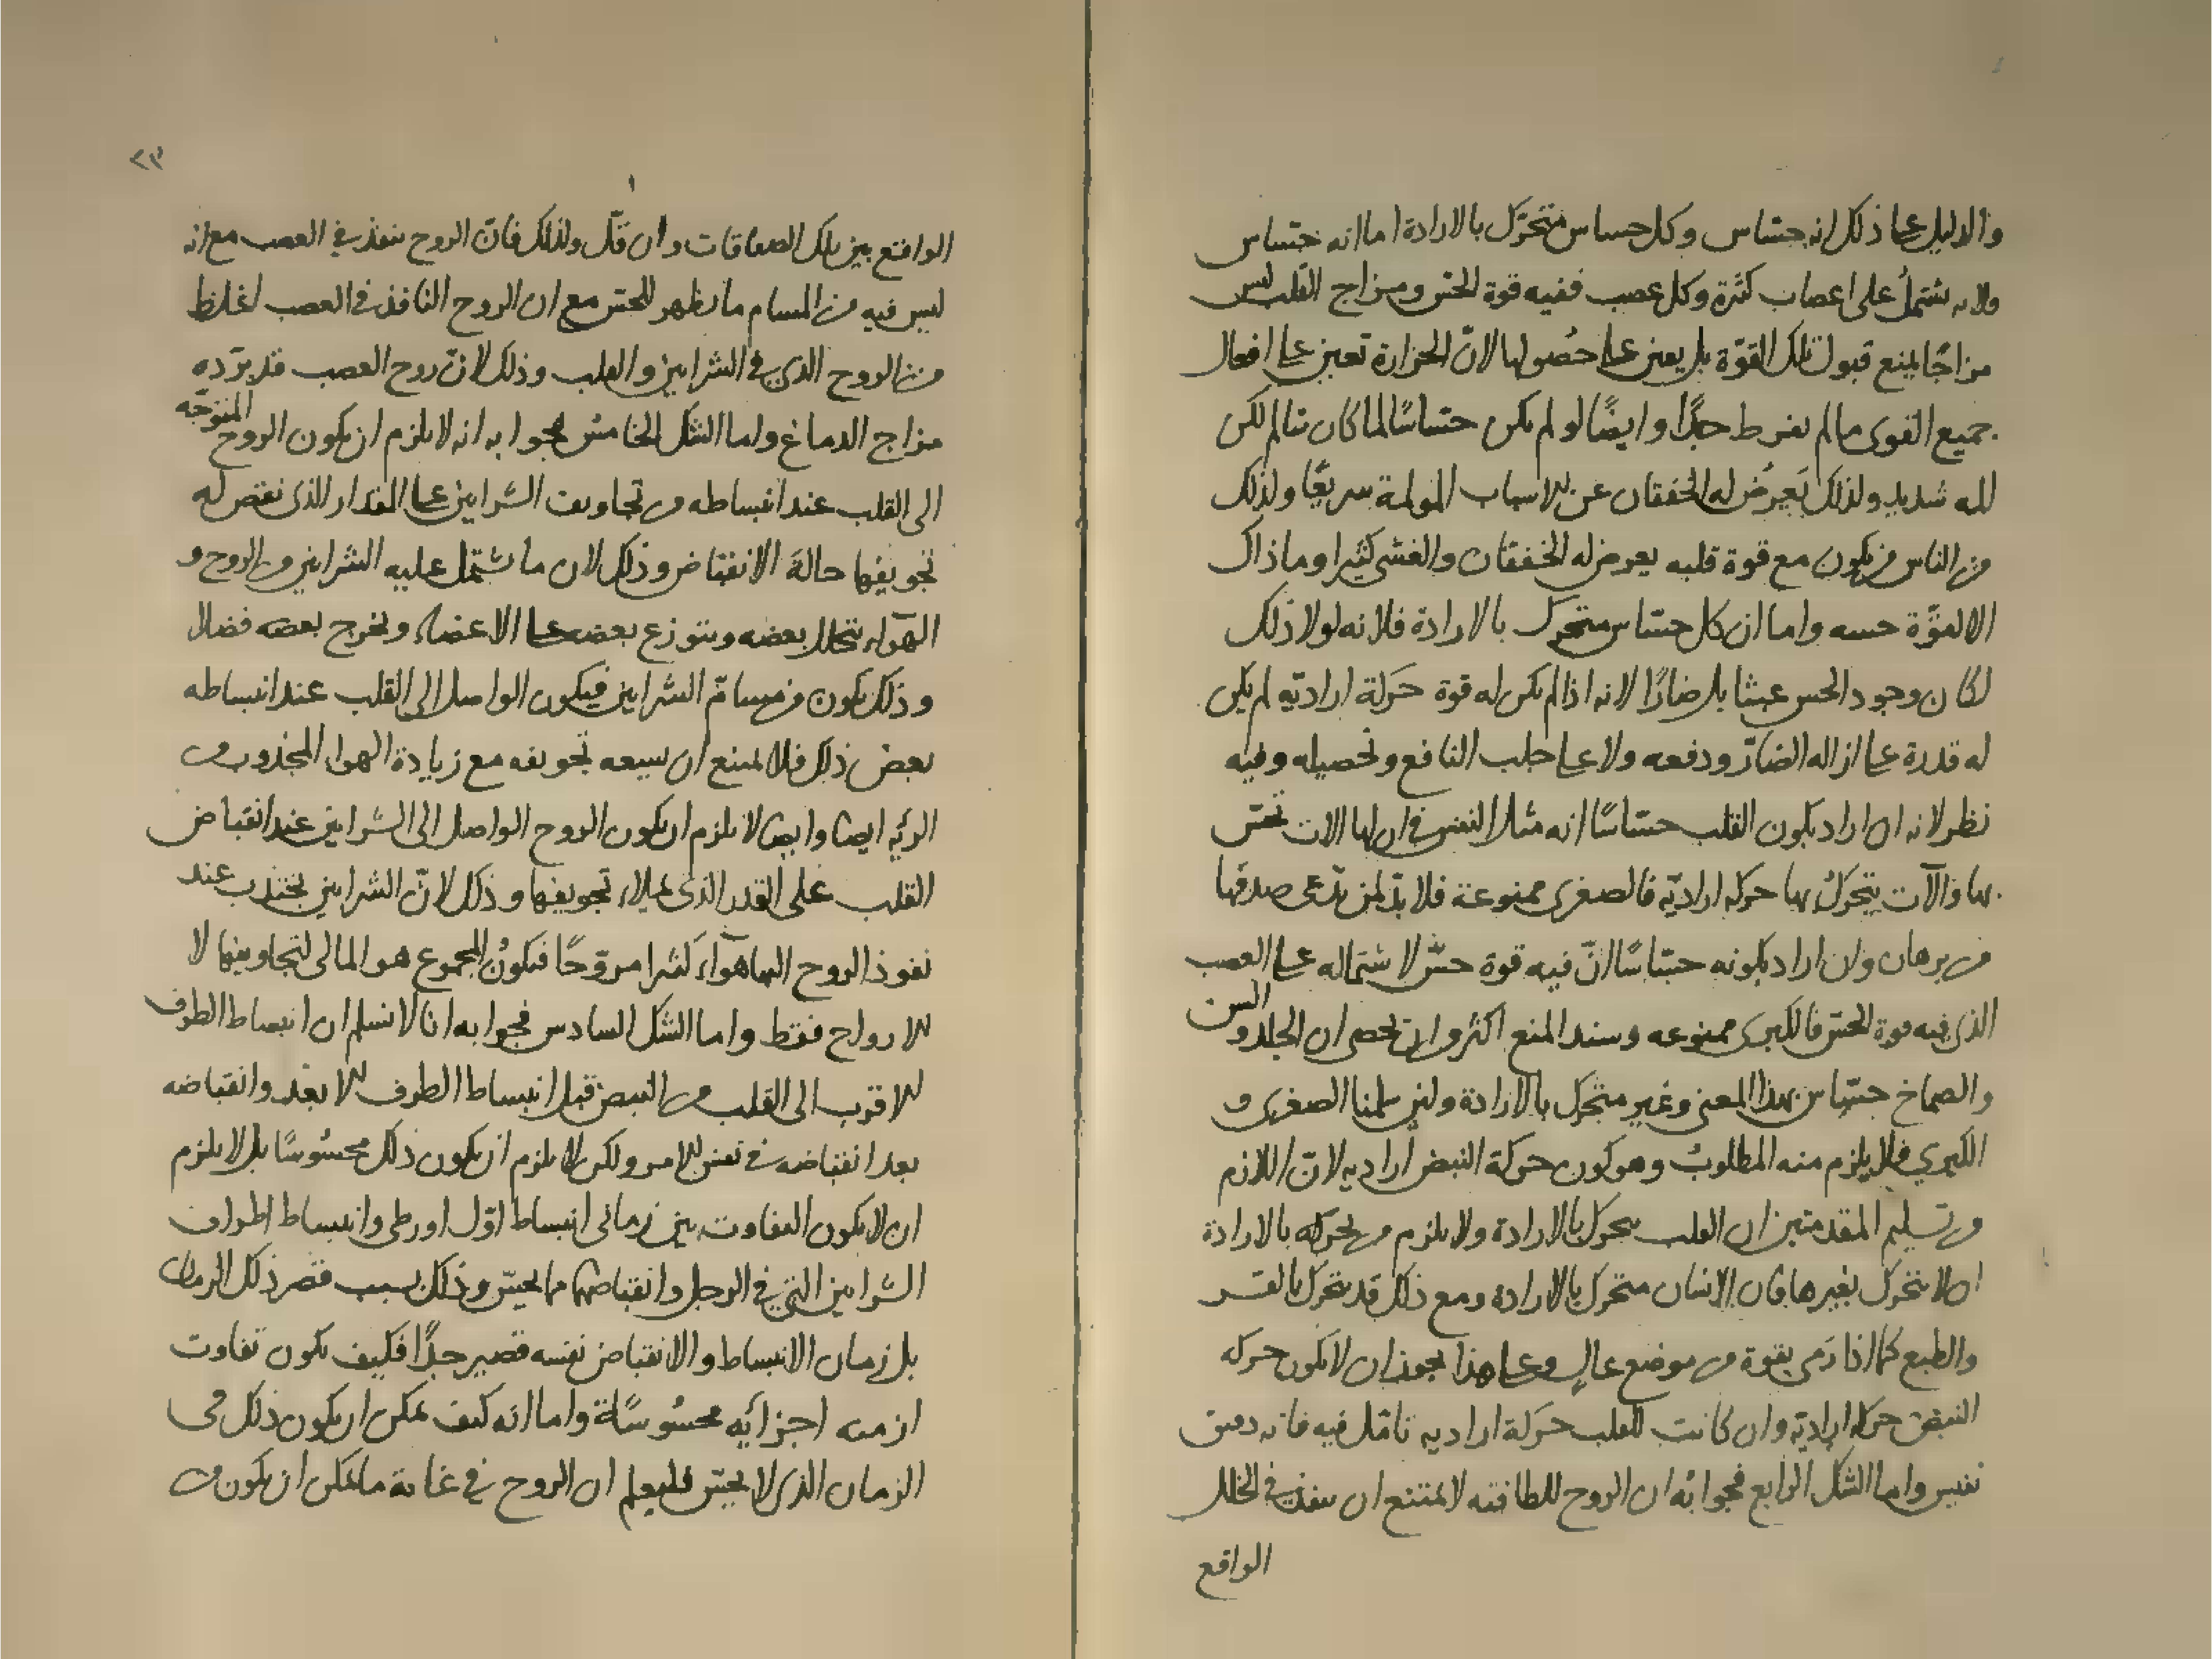 والدليل على ذلك انه حسّاس وكل حساس متحرّك بالارادة اما انه حسّاس
ولانه يشتمل على اعصاب كثيرة وكل عصب ففيه قوة الحسّ ومزاج القلب ليس
مزاجًا يمنع قبول تلك القوّة بل يعين على حصُولها لانّ الحرارة تعين على افعال
جميع القوى ما لم يفرط جدًّا وايضًا لو لم يكن حسّاسًا لما كان تالم لكن
المه شديد ولذلك يَعرِضُ له الخفقان عن الاسباب المولمة سريعًا ولذلك
من الناس من يكون مع قوة قلبه يعرض له الخفقان والغشى كثيرا وما ذاك
الا لقوَّة حسه واما ان كل حسّاس متحرك بالارادة فلانه لولا ذلك
لكان وجود الحس عبثا بل ضارًا لانه اذا لم يكن له قوة حَركة اراديّه لم يكن
له قدرة على ازاله الضارّ ودفعه ولا على جلب النافع وتحصيله وفيه
نظر لانه ان اراد بكون القلب حسّاسًا انه مثل النفس في ان لها الات تحسّ
بها والآت يتحركُ بها حركه اراديّه فالصغرى ممنوعة فلا بدّ لمن يدّعى صدقها
من برهان وان اراد بكونه حسّاسًا انّ فيه قوة حسّ لاشتماله على العصب
الذى فيه قوة الحسّ فالكبرى ممنوعه وسند المنع اكثر من ان يحصى ان الجلد و السن
والصماخ حسّاس بهذا المعنى وغير متحرّك بالارادة ولئن سلمنا الصغرى و
الكبرى فلا يلزم منه المطلوبُ وهو كون حركة النبض اراديه لانّ اللازم
من تسليم المقدمتين ان القلب متحرك بالارادة ولا يلزم من تحركه بالارادة
ان لا يتحرك بغيرها فان الانسان متحرك بالارادة ومع ذلك قد يتحرك بالقسر
والطبع كما اذا رَمى بقوة من موضع عالٍ وعلى هذا يجوز ان لا تكون حركه
النبض حركه اراديّه وان كانت للقلب حَركة اراديه تامّل فيه فانه دقيق
نفيس واما الشكّ الرّابع فجوابُه ان الروح للطافته لا يمتنع ان ينفذ في الخلل
الواقع
٢٣
الواقع بين تلك الصفاقات وان قلّ ولذلك فانّ الروح ينفذ في العصب مع انه
ليس فيه من المسام ما يظهر للحسّ مع ان الروح النافذ في العصب اغلظ
من الروح الذى في الشرايين والقلب وذلك لانّ روح العصب قد برّده
مزاج الدماغ واما الشك الخامسُ فجوابه انه لا يلزم ان يكون الروح المتوجّه
الى القلب عند انبساطه من تجاويف الشرايين على المقدار الذى نقص له
تجويفها حالة الانقباض وذلك لان ما يشتمل عليه الشرايين من الروح و
الهوآء يتحلل بعضه ويتوزع بعضه على الاعضاء ويخرج بعضه فضلا
وذلك يكون من مسامّ الشرايين فيكون الواصل الى القلب عند انبساطه
بعض ذلك فلا يمنع ان يسعه تجويفه مع زيادة الهوا المجذوب من
الريّه ايضا وايضا لا يلزم ان يكون الروح الواصل الى الشرايين عند انقباض
القلب على القدر الذى يملاء تجويفها وذلك لانّ الشرايين يجتذب عند
نفوذ الروح اليها هوآء كثيرا مروّحًا فيكونُ المجموع هو المالى لتجاويفها لا
الارواح فقط واما الشك السادس فجوابه انا لا نسلم ان انبساط الطرف
الاقرب الى القلب من النبض قبل انبساط الطرف الابعد وانقباضه
بعد انقباضه في نفس الامر ولكن لا يلزم ان يكون ذلك محسُوسًا بل لا يلزم
ان لا يكون التفاوت بين زمانى انبساط اوّل اورطى وانبساط اطراف
الشرايين التى في الرجل وانقباضهما مما يحسّ وذلك بسبب قصر ذلك الزمان
بل زمان الانبساط والانقباض نفسه قصير جدًّا فكيف يكون تفاوت
ازمنه اجزائه محسُوسًا واما انه كيف يمكن ان يكون ذلك في
الزمان الذى لا يحسّ فليعلم ان الروح في غاية ما يمكن ان يكون من